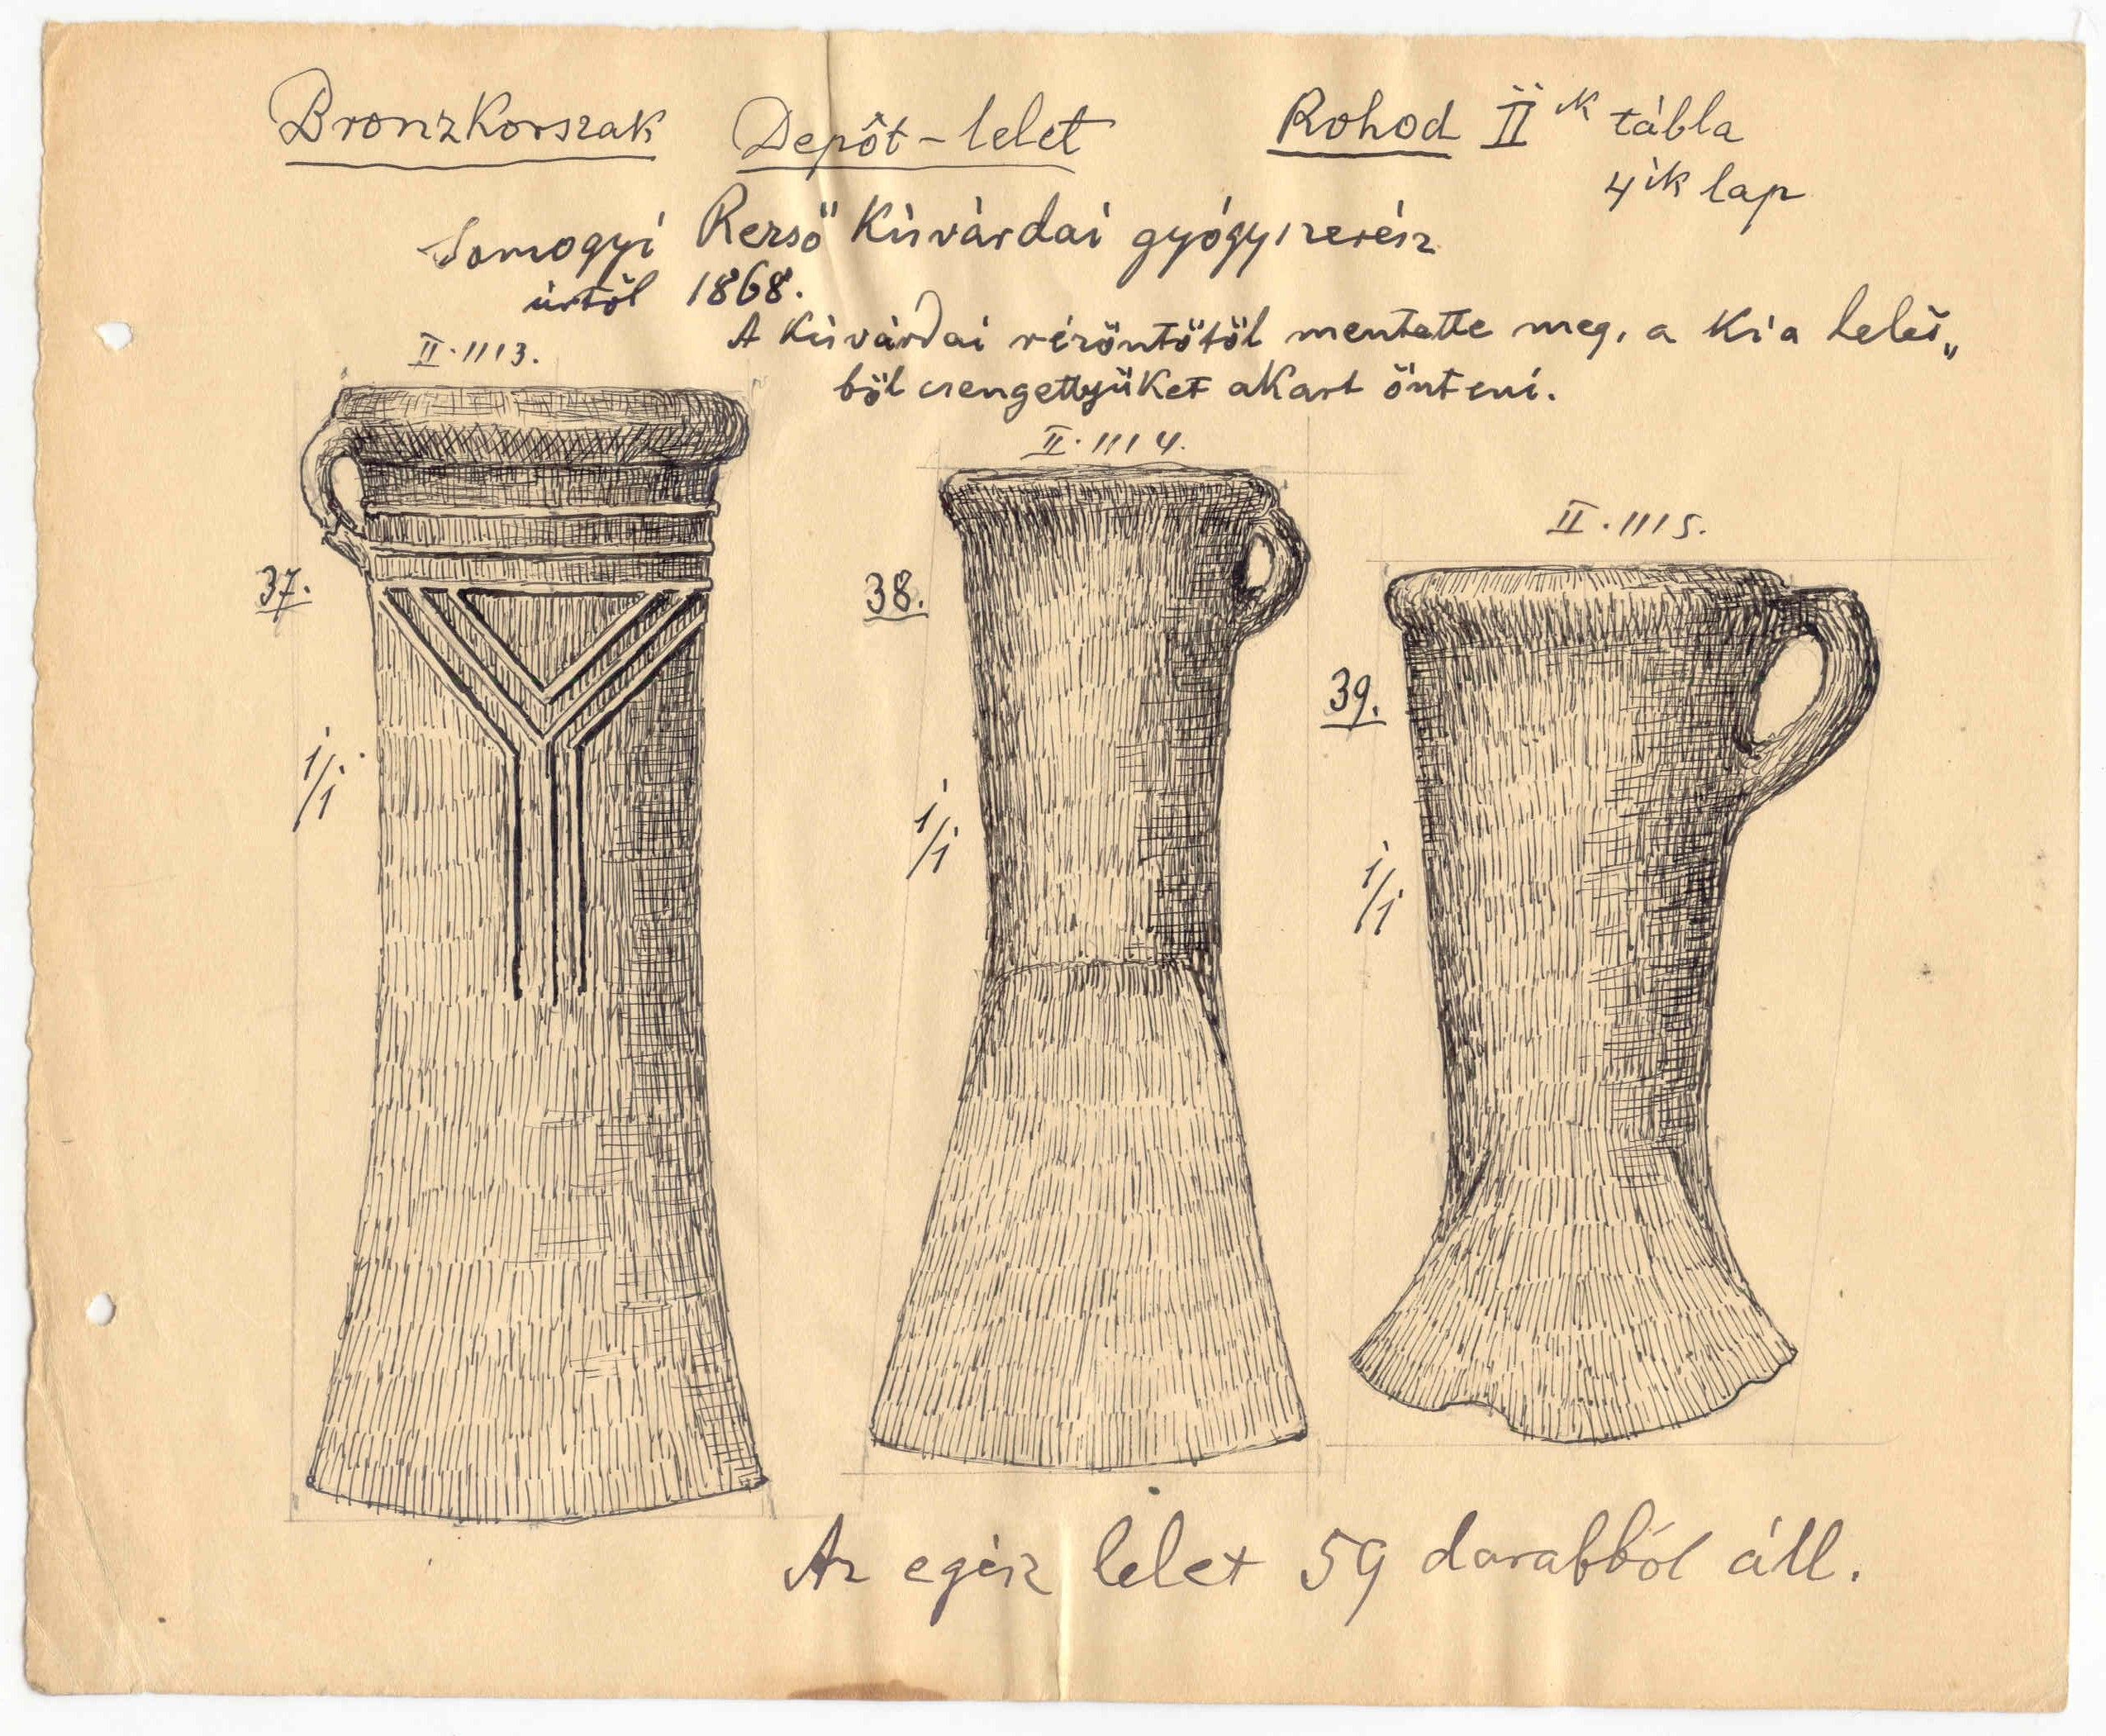 Bronzkorszak Depôt-lelet Rohod II ik tábla
4 ik lap
Somogyi Rezső Kisvárdai gyógyszerész
úrtól 1868.
A Kisvárdai rézöntőtől mentette meg, a ki a lelet„
ből csengettyüket akart önteni.
II.1113.
II.1114.
II.1115.
37.
38.
39.
1/1
1/1
1/1
Az egész lelet 59 darabból áll.